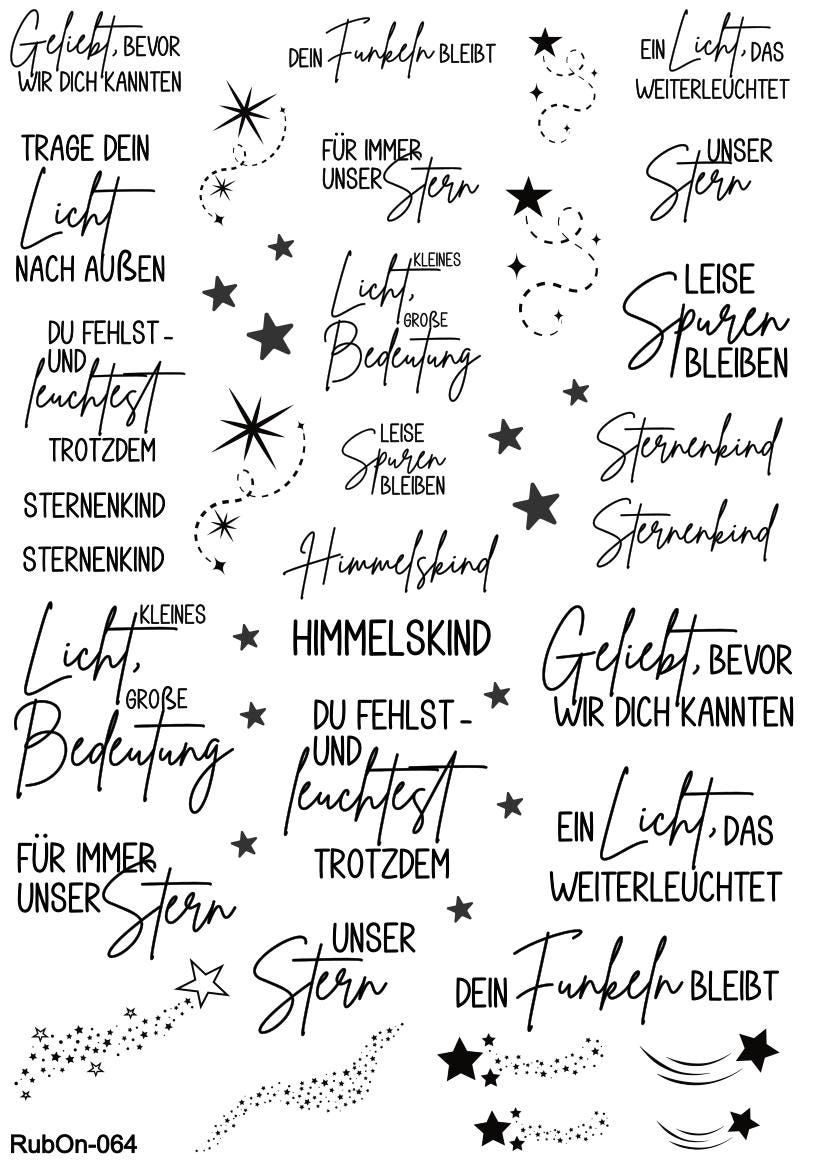 Geliebt, BEVOR
WIR DICH KANNTEN
DEIN Funkeln BLEIBT
EIN Licht, DAS
WEITERLEUCHTET
TRAGE DEIN
Licht
NACH AUßEN
FÜR IMMER
UNSER Stern
UNSER
Stern
KLEINES
Licht,
GROßE
Bedeutung
LEISE
Spuren
BLEIBEN
DU FEHLST -
UND
leuchtest
TROTZDEM
LEISE
Spuren
BLEIBEN
Sternenkind
Sternenkind
STERNENKIND
STERNENKIND
Himmelskind
KLEINES
Licht,
GROßE
Bedeutung
HIMMELSKIND
Geliebt, BEVOR
WIR DICH KANNTEN
DU FEHLST -
UND
leuchtest
TROTZDEM
EIN Licht, DAS
WEITERLEUCHTET
FÜR IMMER
UNSER Stern
UNSER
Stern
DEIN Funkeln BLEIBT
RubOn-064